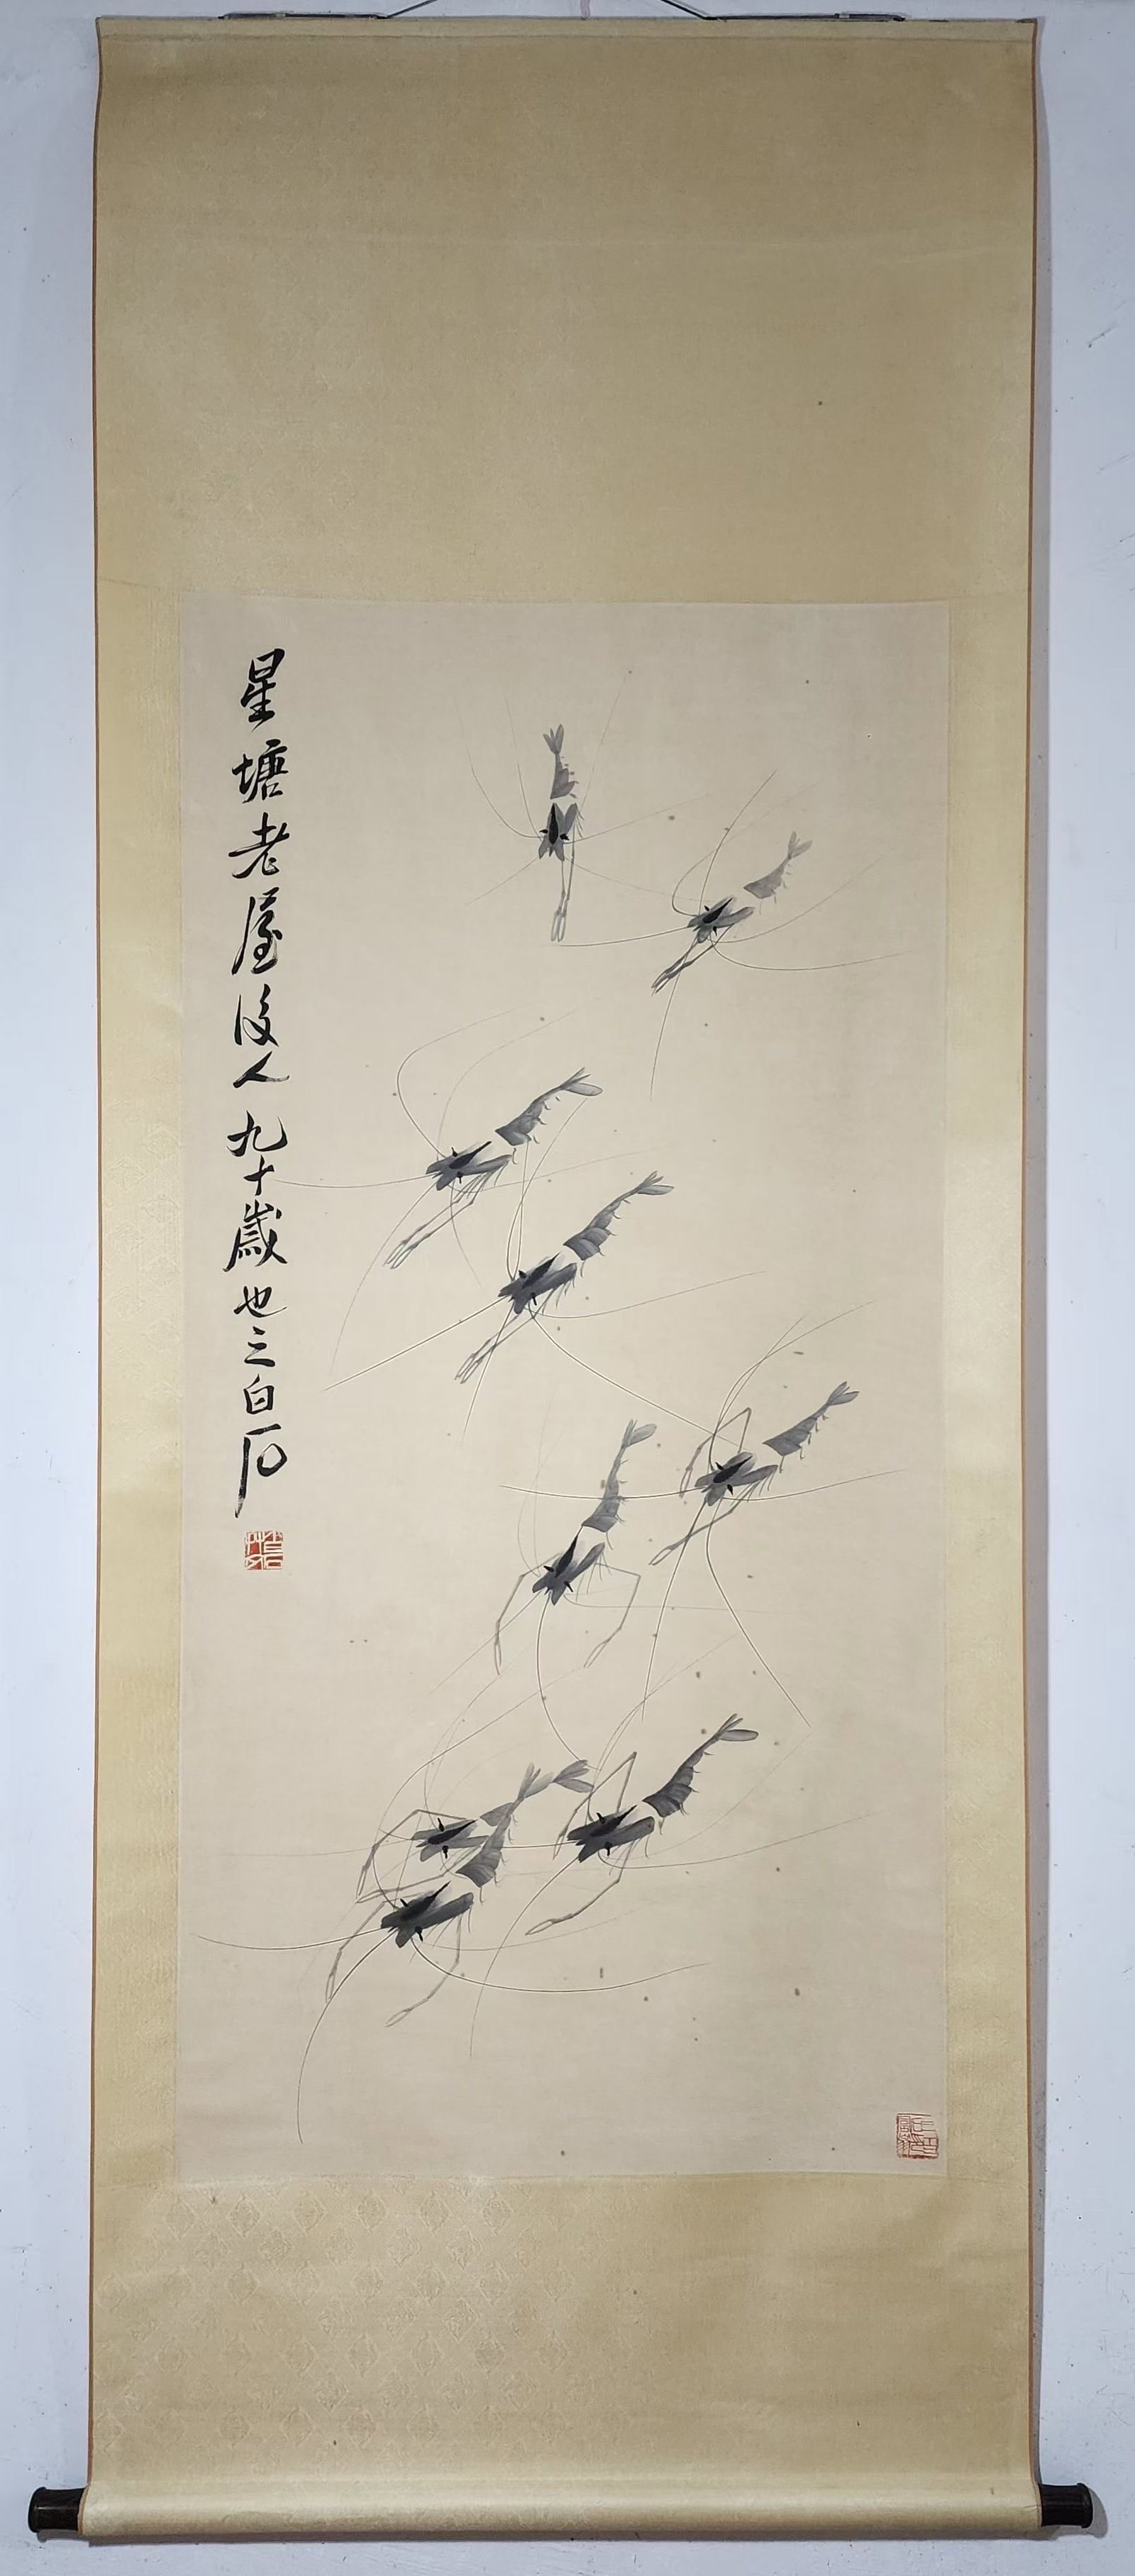 星塘老屋後人九十歲也三白石